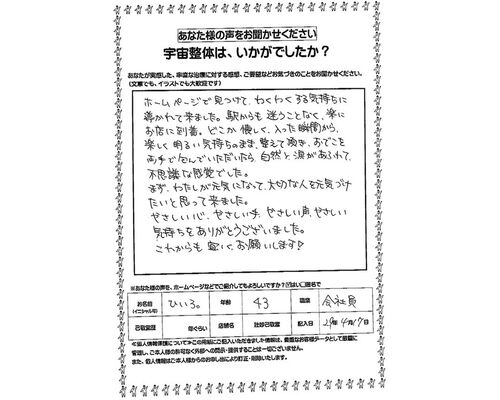 あなた様の声をお聞かせください
宇宙整体は、いかがでしたか？
あなたが実感した、幸宙な治療に対する感想、ご要望などお気づきのことをお聞かせください。
(文章でも、イラストでも大歓迎です)
ホームページで見つけて、わくわくする気持ちに
導かれて来ました。駅からも迷うことなく、楽に
お店に到着。どこか懐しく、入った瞬間から、
楽しく明るい気持ちのまま、整えて頂き、おでこを
両手で包んでいただいたら、自然と涙があふれて、
不思議な感覚でした。
まず、わたしが元気になって、大切な人を元気づけ
たいと思って来ました。
やさしい心、やさしい手、やさしい声、やさしい
気持ちをありがとうございました。
これからも、宜しくお願いします♡
※あなた様の声を、ホームページなどでご紹介してもよろしいですか？はい 匿名で
お名前 ひいろ。 年齢 43 職業 会社員
(イニシャル可)
己敬堂歴 年ぐらい 店舗名 社紗己敬堂 記入日 29年4月17日
≪個人情報保護について≫この用紙にご記入いただきました情報は、貴重なお客様データとして厳重に
管理し、ご本人様の許可なく外部への開示・提供することは一切ございません。
また、個人情報はご本人様からのお申し出により訂正・削除いたします。